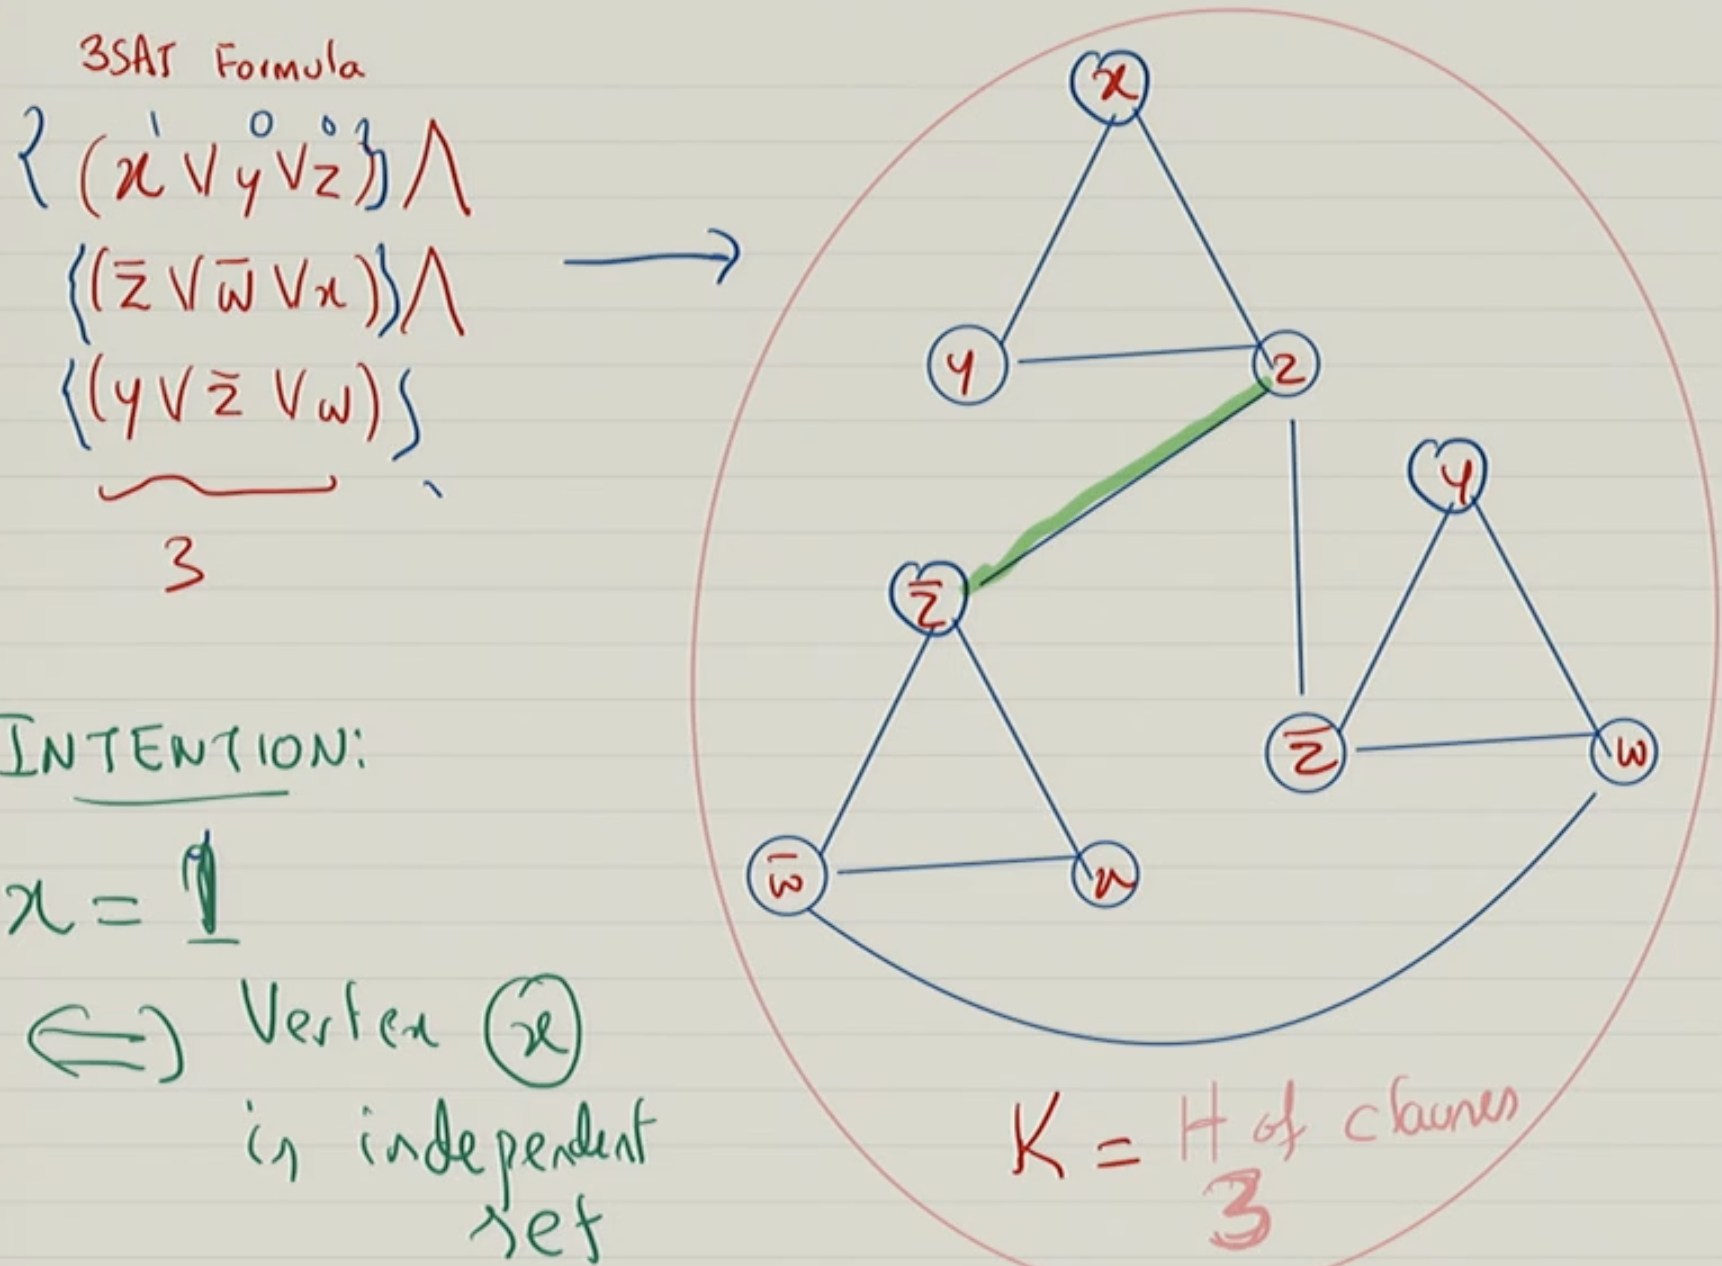 3SAT Formula
1 0 0 1
{ (x ∨ y ∨ z)} ∧
{(z̄ ∨ w̄ ∨ x)} ∧
{(y ∨ z̄ ∨ w)}
3
INTENTION:
x = 1
⟺ Vertex x
is independent
set
x
y
z
y
z̄
z̄
w
w̄
x
K = # of clauses
3